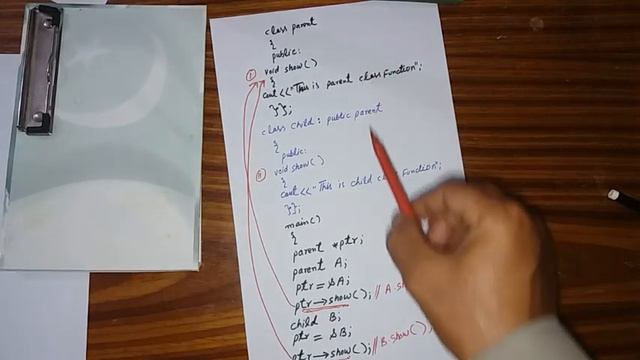 class parent
{
public:
① void show()
{
cout<<"This is parent class Function";
}};
class child: public parent
{
public:
② void show()
{
cout<<"This is child class Function";
}};
main()
{
parent *ptr;
parent A;
ptr=&A;
ptr→show(); // A.s
child B;
ptr = &B;
ptr→show(); // B.show();